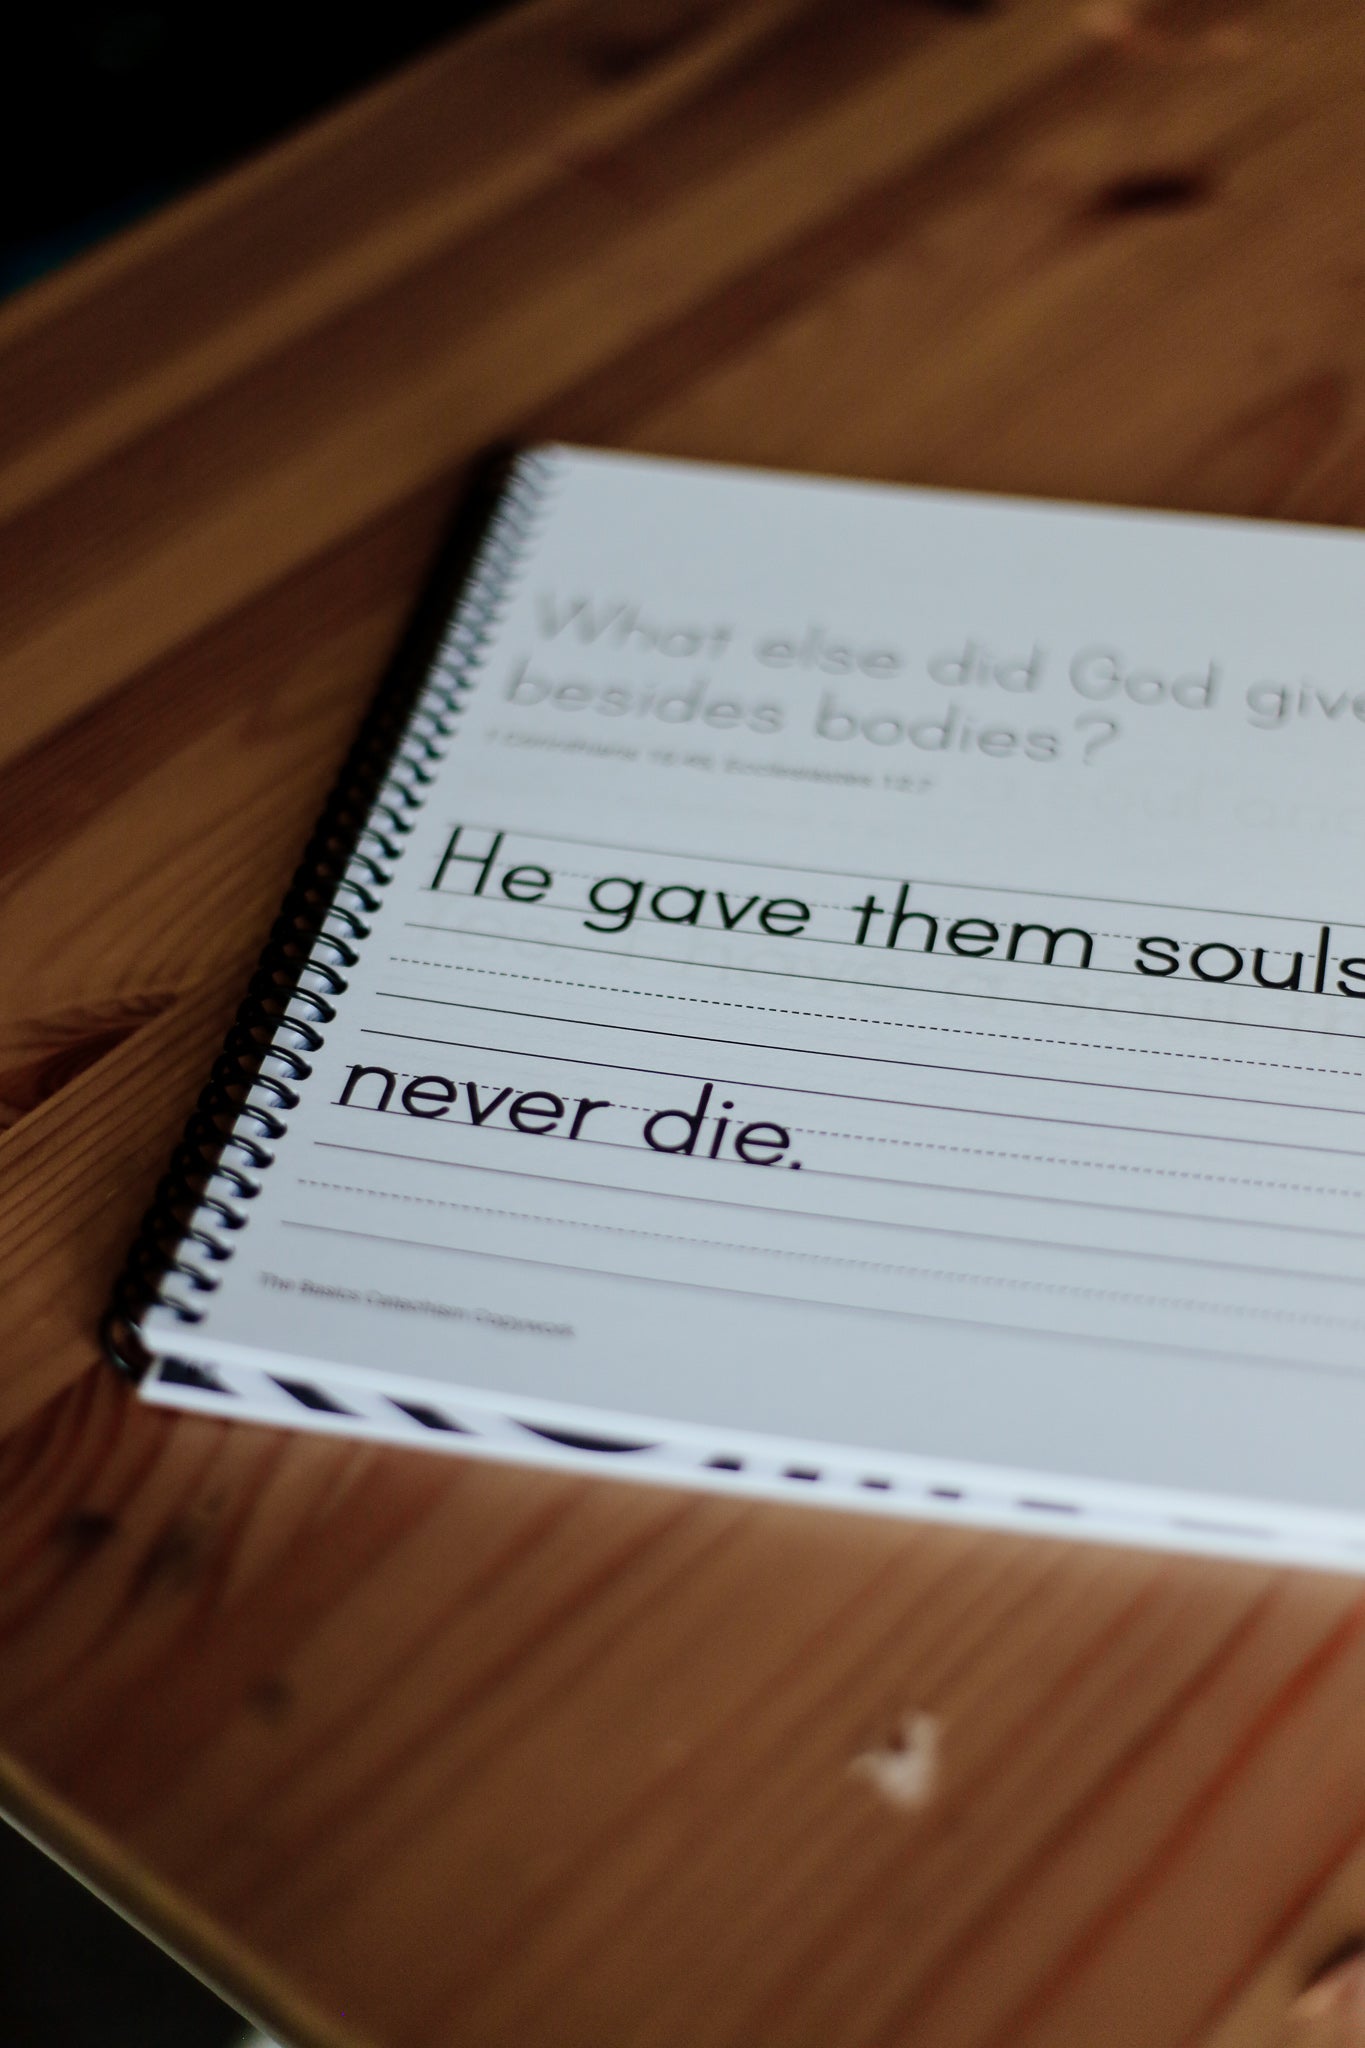 What else did God give
besides bodies?
1 Corinthians 15:45, Ecclesiastes 12:7
He gave them souls
never die.
The Basics Catechism Copywork